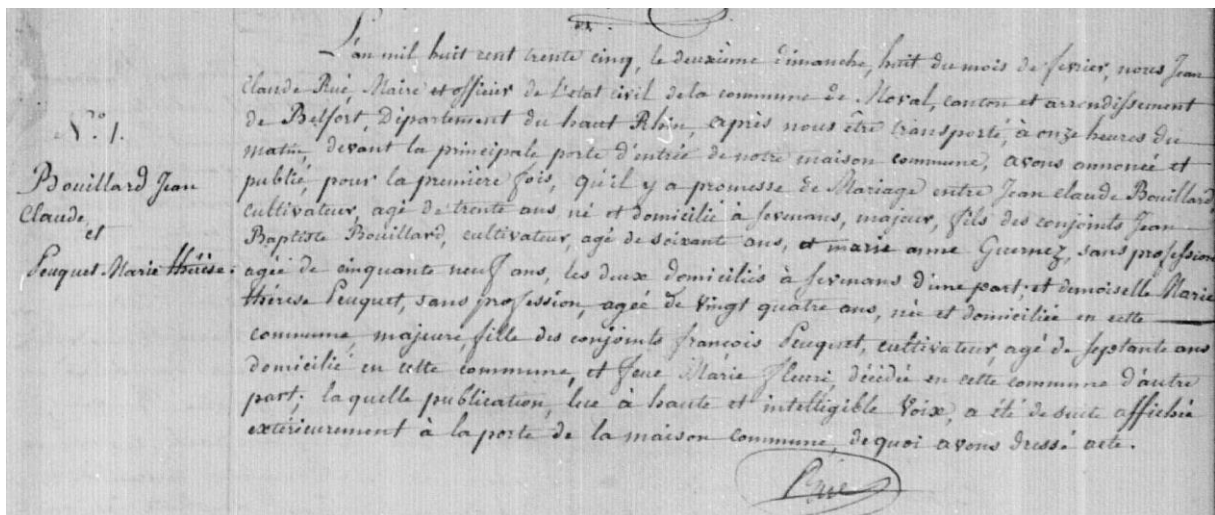 L'an mil huit cent trente cinq, le deuxième dimanche, huit du mois de fevrier, nous Jean
Claude Rué, Maire et officier de l'etat civil de la commune de Moval, canton et arrondissement
de Belfort, Département du haut Rhin, après nous être transporté, à onze heures du
matin, devant la principale porte d'entrée de notre maison commune, avons annoncé et
publié, pour la première fois, qu'il y a promesse de Mariage entre Jean claude Bouillard,
cultivateur, agé de trente ans, né et domicilié à sevenans, majeur, fils des conjoints Jean
Baptiste Bouillard, cultivateur, agé de soixant ans, et marie anne Guernez, sans profession
agée de cinquante neuf ans, les deux domiciliés à sevenans d'une part; et demoiselle Marie
thérèse Peuquet, sans profession, agée de vingt quatre ans, née et domiciliée en cette
commune, majeure, fille des conjoints françois Peuquet, cultivateur, agé de septante ans
domicilié en cette commune, et feue Marie fleuri, décédée en cette commune d'autre
part; la quelle publication, lue à haute et intelligible voix, a été de suit affichée
extérieurement à la porte de la maison commune, de quoi avons dressé acte.
N.° 1.
Bouillard Jean
Claude,
et
Peuquet Marie thérèse.